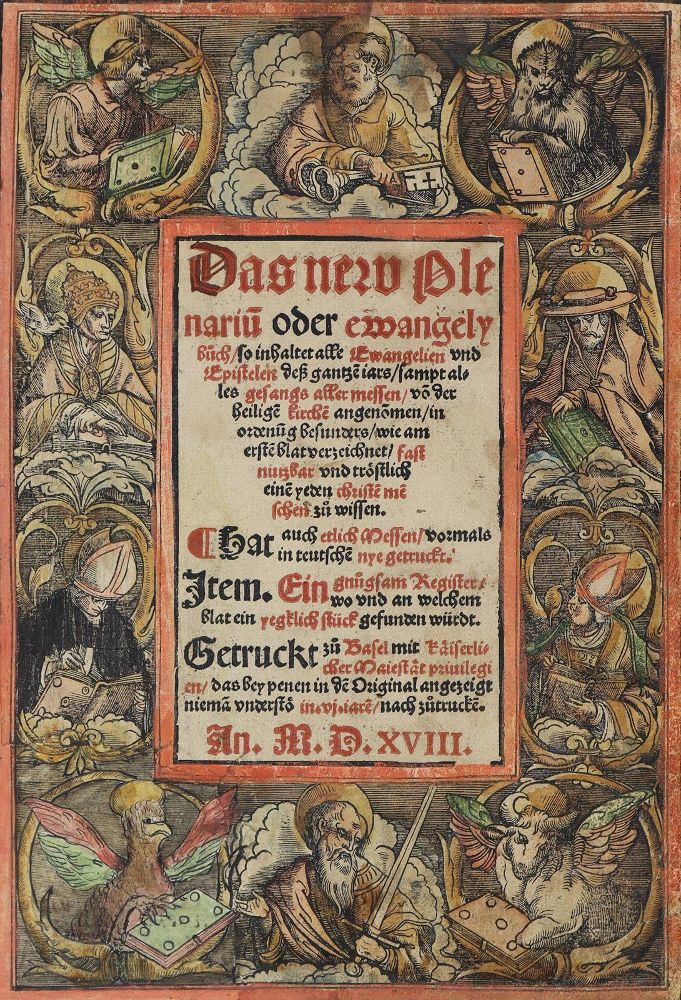 Das new Ple
nariū oder ewangely
bůch/so inhaltet alle Ewangelien vnd
Epistelen deß gantzē iars/sampt al-
les gesangs aller messen/ vō der
heiligē kirchē angenōmen/in
ordenūg besunders/wie am
erstē blat verzeichnet/ fast
nutzbar vnd tröstlich
einē yeden christē mē
schen zů wissen.
¶Hat auch etlich Messen/ vormals
in teutschē nye getruckt.
Item. Ein gnůgsam Register/
wo vnd an welchem
blat ein yegklich stück gefunden würdt.
Getruckt zů Basel mit käiserli-
cher Maiestät priuilegi
en/ das bey penen in dē Original angezeigt
niemā vnderstō in.vj.iarē/ nach zůtruckē.
An. M. D. XVIII.